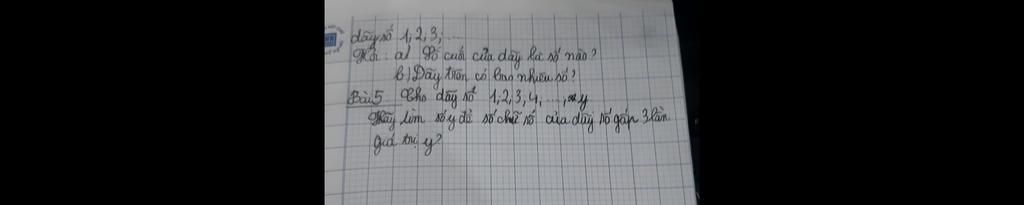 dãy số 1, 2, 3, ...
Hỏi: a) Số cuối của dãy là số nào?
b) Dãy trên có bao nhiêu số?
Bài 5 Cho dãy số 1, 2, 3, 4, ..., y
Hãy tìm số y để số chữ số của dãy số gấp 3 lần
giá trị y?